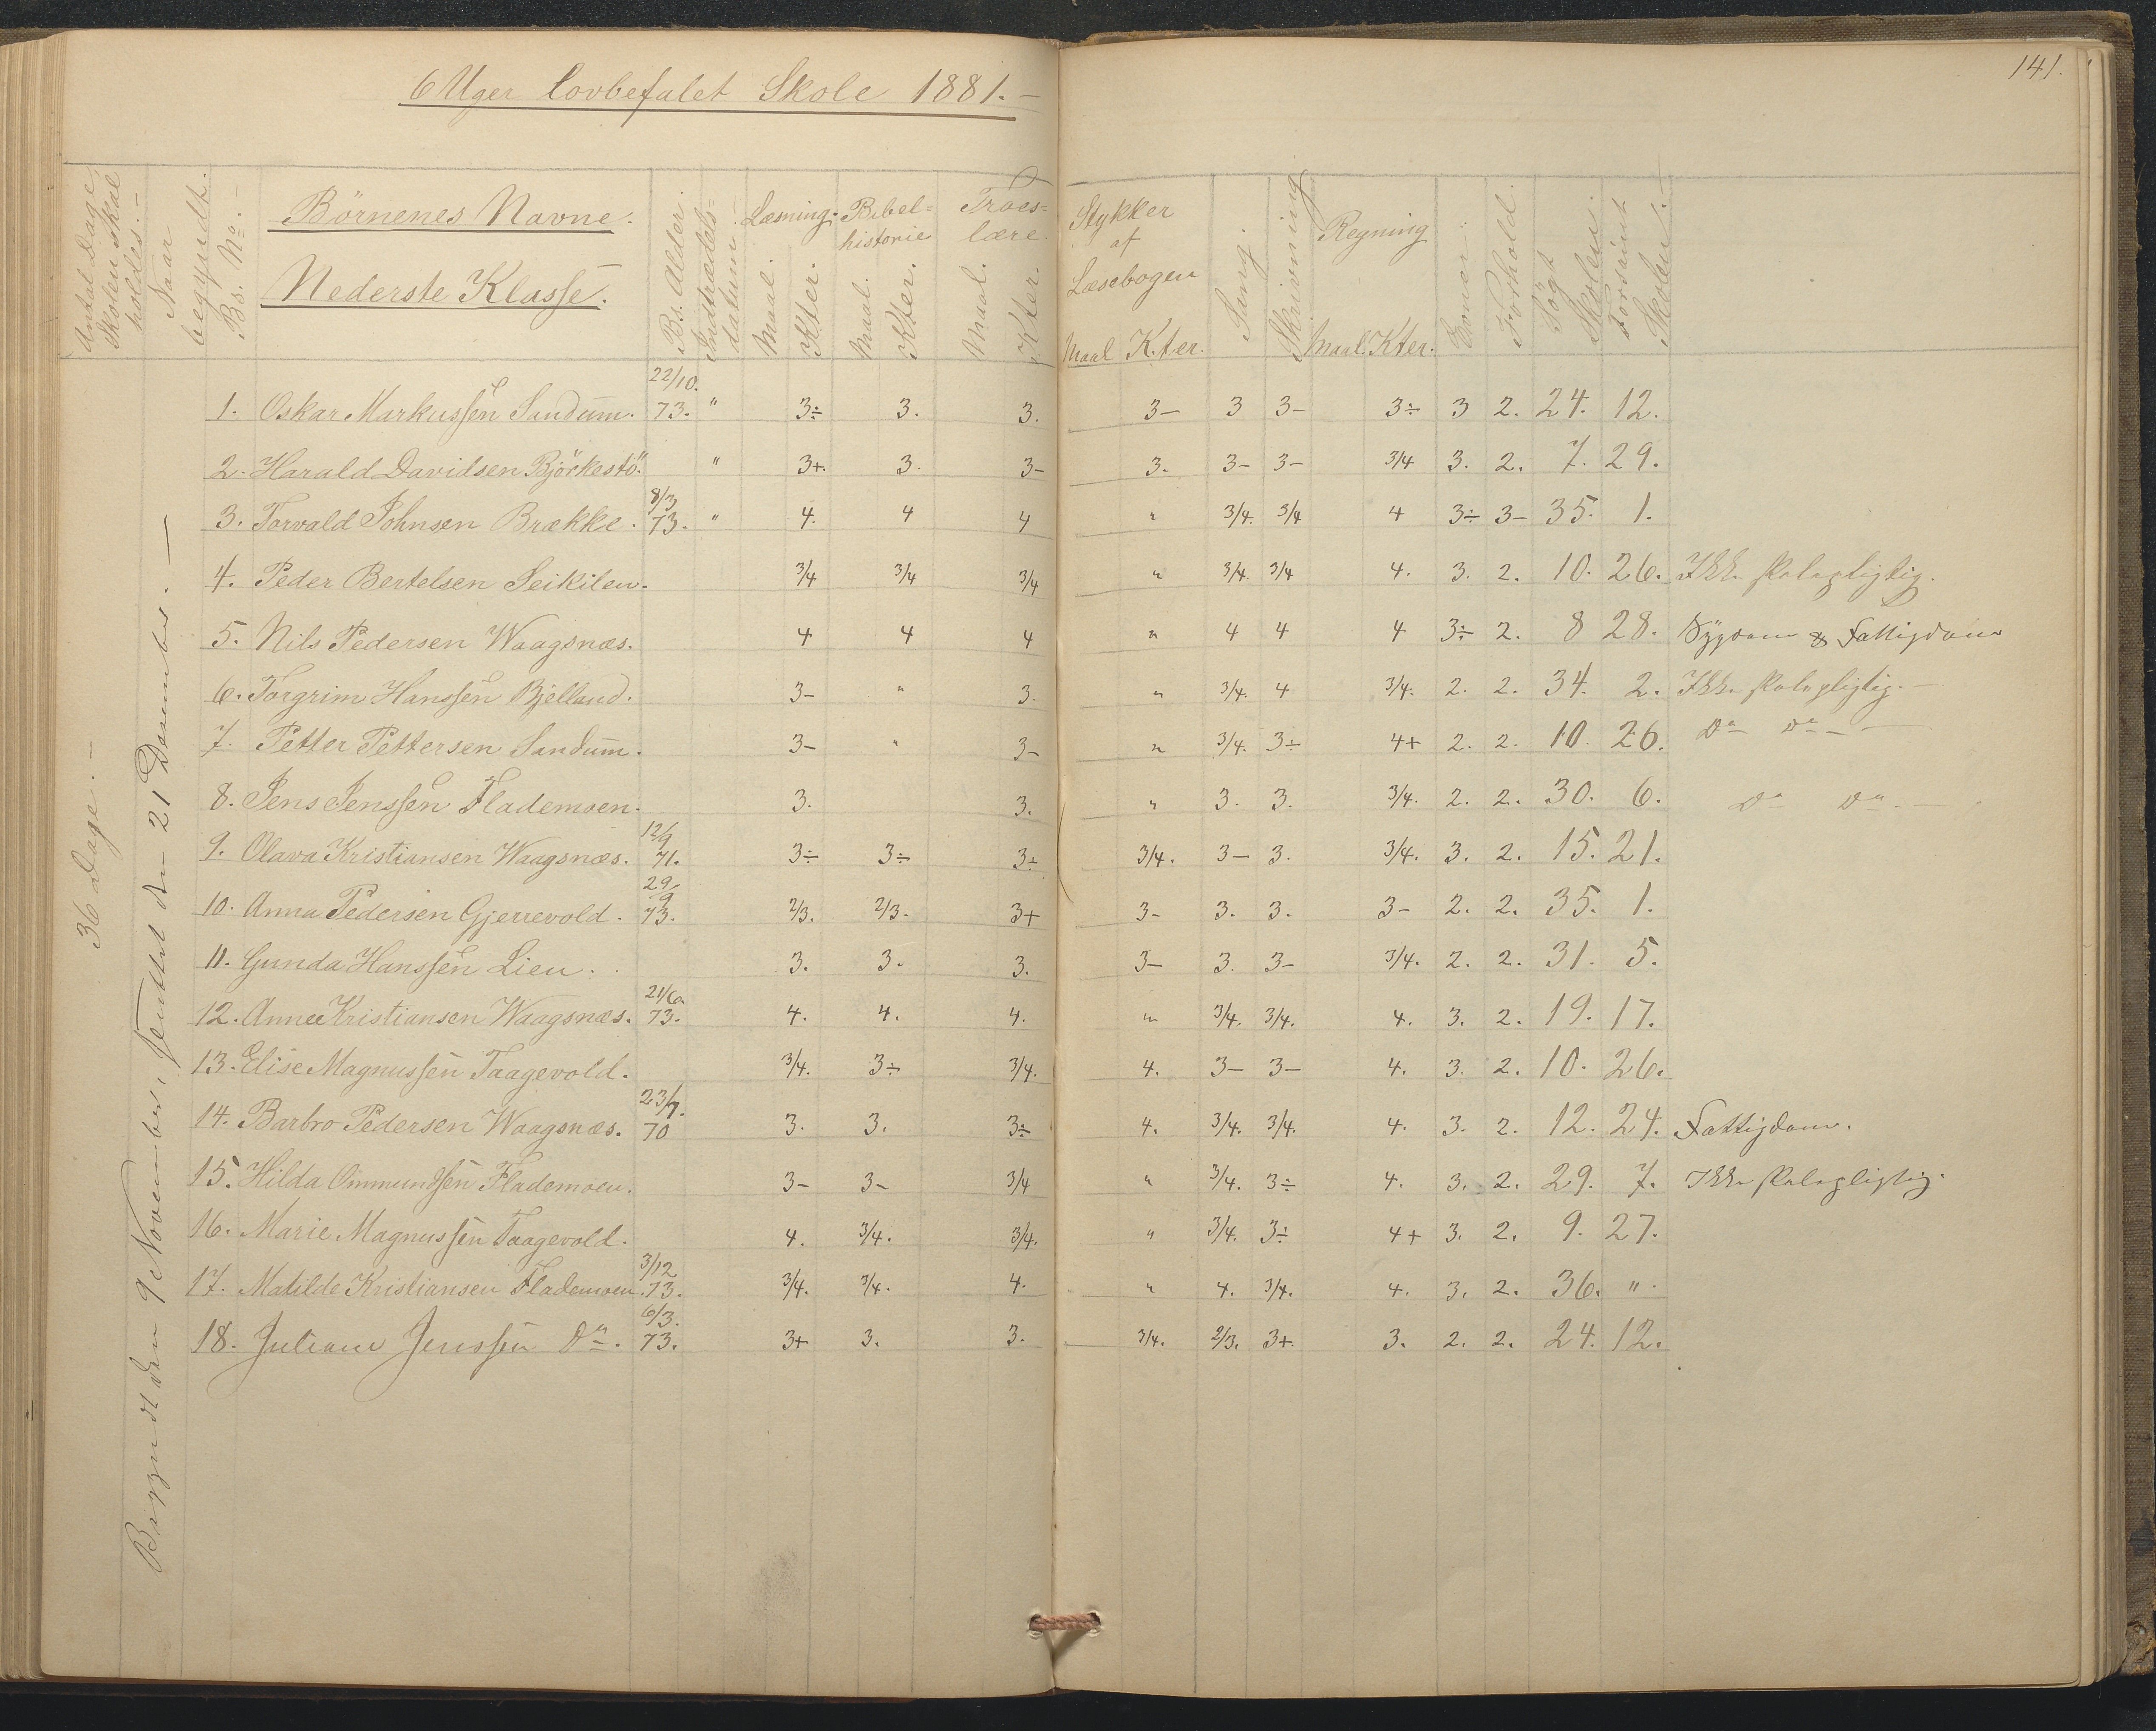 6 Uger lovbefalet Skole 1881.—
141.
Antal Dage Skolen skal holdes.—
Naar begyndt.
Bs. No.—
Börnenes Navne.
Nederste Klasse.
Bs. Alder.
Indtrædelsdatum.
Læsning. Maal. Kter.
Bibelhistorie Maal. Kter.
Troeslære. Maal. Kter.
Stykker af Læsebogen Maal Kter.
Sang.
Skrivning
Regning Maal. Kter.
Evner.
Forhold.
Sögt Skolen.
Forsömt Skolen.—
36 Dage.—
Begyndt den 9 November, sluttet den 21 December.—
1. Oskar Markussen Sandum. 22/10. 73. " 3÷ 3. 3. 3— 3 3— 3÷ 3 2. 24. 12.
2. Harald Davidsen Björkestö. " 3+. 3. 3— 3. 3— 3— 3/4 3. 2. 7. 29.
3. Torvald Johnsen Brække. 8/3 73. " 4. 4 4 " 3/4. 3/4 4 3÷ 3— 35. 1.
4. Peder Bertelsen Seikilen. 3/4 3/4 3/4 " 3/4. 3/4 4. 3. 2. 10. 26. Ikke skolepligtig.
5. Nils Pedersen Waagsnæs. 4 4 4 " 4 4 4 3÷ 2. 8 28. Sygdom & Fattigdom
6. Torgrim Hanssen Bjelland. 3— " 3. " 3/4. 4 3/4. 2. 2. 34. 2. Ikke skolepligtig.—
7. Petter Pettersen Sandum. 3— " 3— " 3/4. 3÷ 4+ 2. 2. 10. 26. Do Do —
8. Jens Jenssen Flademoen. 3. 3. " 3. 3. 3/4. 2. 2. 30. 6. Do Do
9. Olava Kristiansen Waagsnæs. 12/9 71. 3÷ 3÷ 3÷ 3/4. 3— 3. 3/4. 3. 2. 15. 21.
10. Anna Pedersen Gjerrevold. 29/9 73. 2/3. 2/3. 3+ 3— 3. 3. 3— 2. 2. 35. 1.
11. Gunda Hanssen Lien. 3. 3. 3. 3— 3. 3— 3/4. 2. 2. 31. 5.
12. Anne Kristiansen Waagsnæs. 21/6. 73. 4. 4. 4. " 3/4. 3/4. 4. 3. 2. 19. 17.
13. Elise Magnussen Taagevold. 3/4. 3÷ 3/4. 4. 3— 3— 4. 3. 2. 10. 26.
14. Barbro Pedersen Waagsnæs. 23/7. 70 3. 3. 3÷ 4. 3/4. 3/4. 4. 3. 2. 12. 24. Fattigdom.
15. Hilda Ommundsen Flademoen. 3— 3— 3/4 " 3/4. 3÷ 4. 3. 2. 29. 7. Ikke skolepligtig.
16. Marie Magnussen Taagevold. 4. 3/4. 3/4. " 3/4. 3÷ 4+ 3. 2. 9. 27.
17. Matilde Kristiansen Flademoen. 3/12 73. 3/4. 3/4. 4. " 4. 3/4. 4. 3. 2. 36. "
18. Juliane Jenssen Do. 6/3. 73. 3+ 3. 3. 3/4. 2/3. 3+. 3. 2. 2. 24. 12.